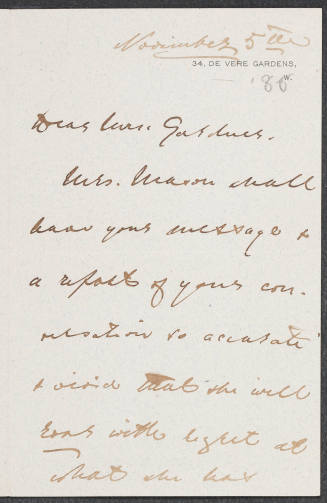 November 5th
34, DE VERE GARDENS,
W.
'86
Dear Mrs. Gardner.
Mrs. Mason shall
have your message &
a report of your con-
versation so accurate
& vivid that she will
with at
what she has